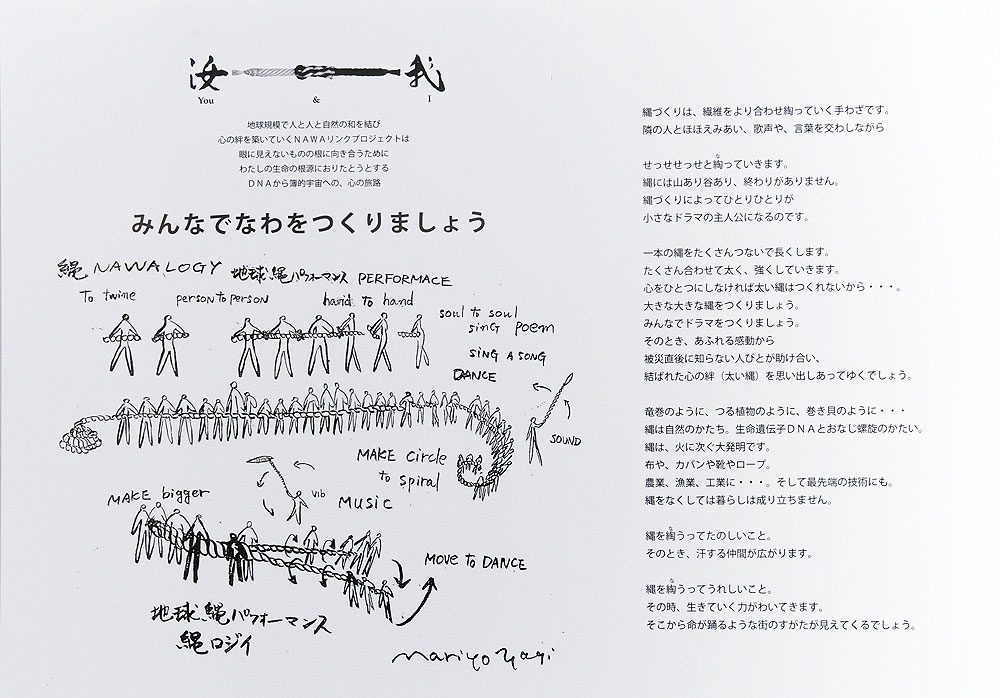 汝 我
You & I
地球規模で人と人と自然の和を結び
心の絆を築いていくNAWAリンクプロジェクトは
眼に見えないものの根に向き合うために
わたしの生命の根源におりたとうとする
DNAから簿的宇宙への、心の旅路
みんなでなわをつくりましょう
縄 NAWALOGY 地球縄パフォーマンス PERFORMACE
To twine person to person hand to hand
soul to soul
sing poem
SING A SONG
DANCE
SOUND
MAKE circle
to spiral
MAKE bigger
VIB
MUSIC
MOVE to DANCE
地球縄パフォーマンス
縄ロジイ
Mariyo Yagi
縄づくりは、繊維をより合わせ綯っていく手わざです。
隣の人とほほえみあい、歌声や、言葉を交わしながら
な
せっせせっせと綯っていきます。
縄には山あり谷あり、終わりがありません。
縄づくりによってひとりひとりが
小さなドラマの主人公になるのです。
一本の縄をたくさんつないで長くします。
たくさん合わせて太く、強くしていきます。
心をひとつにしなければ太い縄はつくれないから・・・。
大きな大きな縄をつくりましょう。
みんなでドラマをつくりましょう。
そのとき、あふれる感動から
被災直後に知らない人びとが助け合い、
結ばれた心の絆（太い縄）を思い出しあってゆくでしょう。
竜巻のように、つる植物のように、巻き貝のように・・・
縄は自然のかたち。生命遺伝子DNAとおなじ螺旋のかたい。
縄は、火に次ぐ大発明です。
布や、カバンや靴やロープ。
農業、漁業、工業に・・・。そして最先端の技術にも。
縄をなくしては暮らしは成り立ちません。
な
縄を綯うってたのしいこと。
そのとき、汗する仲間が広がります。
な
縄を綯うってうれしいこと。
その時、生きていく力がわいてきます。
そこから命が踊るような街のすがたが見えてくるでしょう。